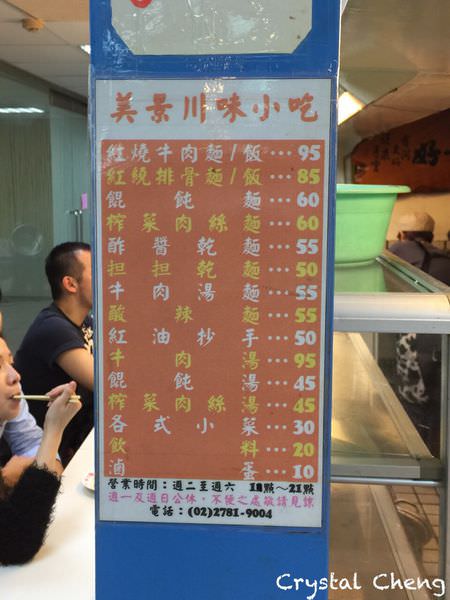 美景川味小吃
紅燒牛肉麵/飯…95
紅燒排骨麵/飯…85
餛飩麵…60
榨菜肉絲麵…60
酢醬乾麵…55
担担乾麵…50
牛肉湯麵…55
酸辣麵…55
紅油抄手…50
牛肉湯…95
餛飩湯…45
榨菜肉絲湯…45
各式小菜…30
飲料…20
滷蛋…10
營業時間：週二至週六 11點～21點
週一及週日公休，不便之處敬請見諒
電話：(02)2781-9004
Crystal Cheng